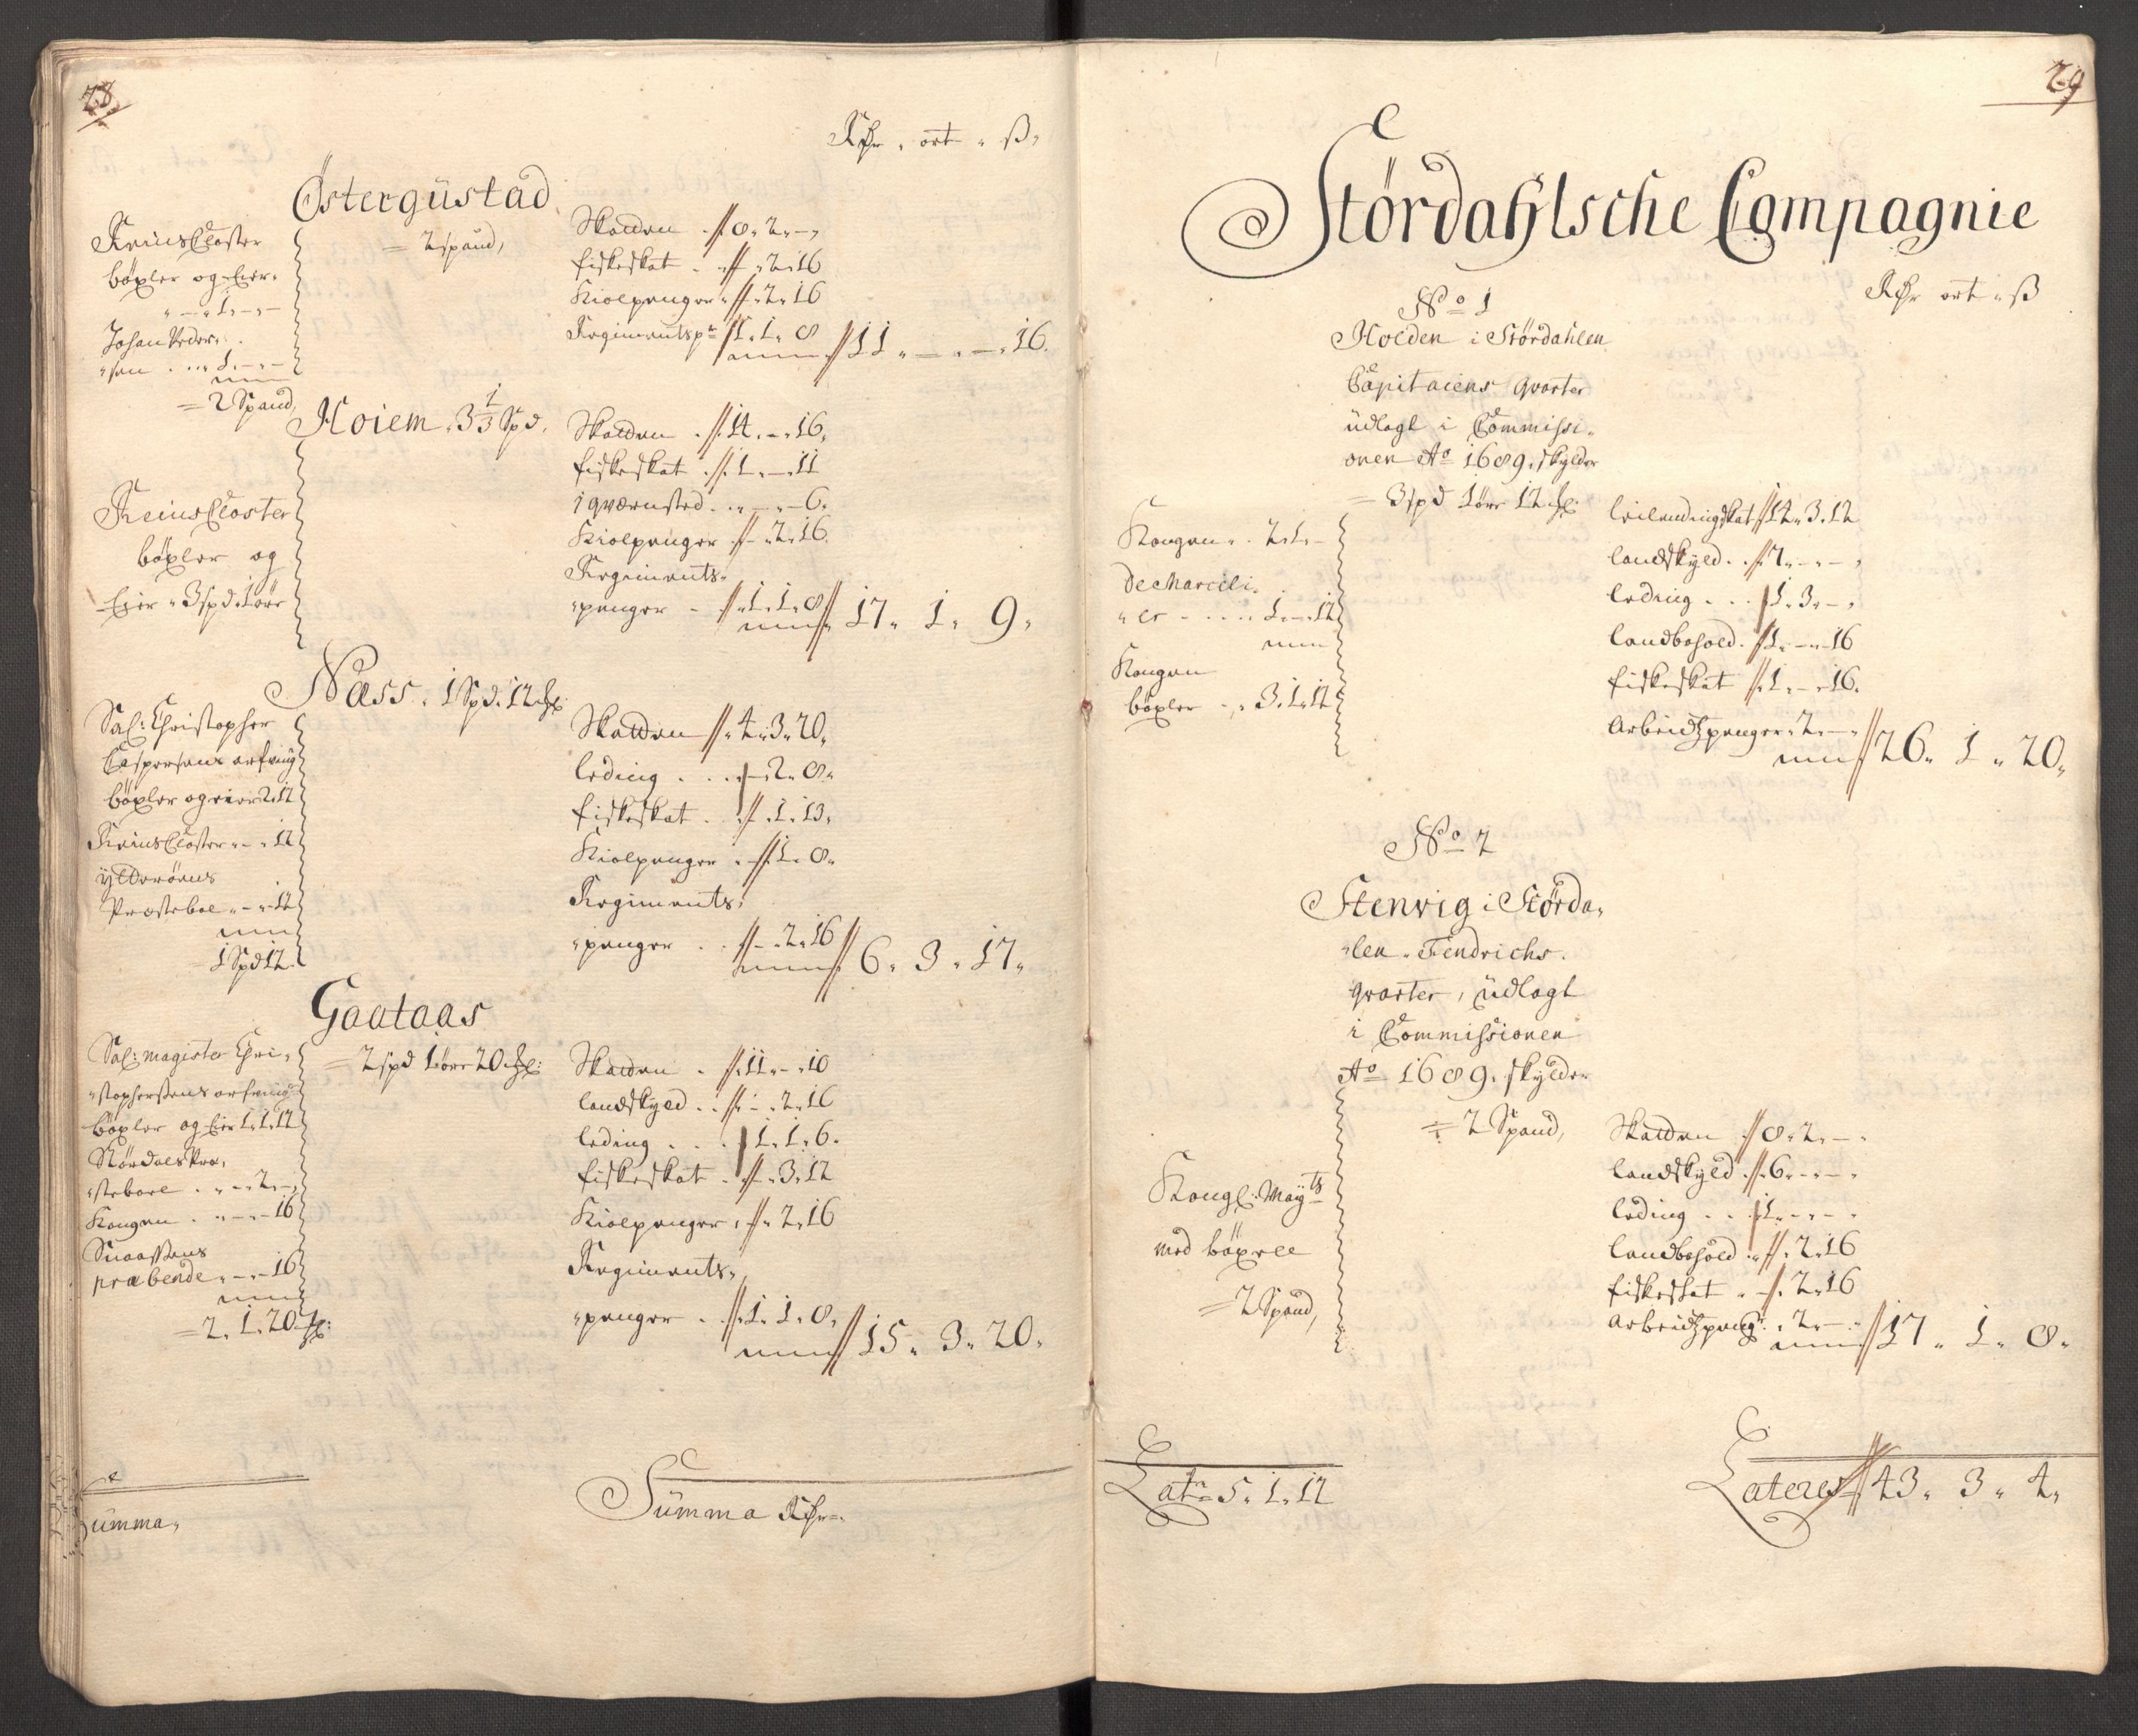 28
Rdr. ort. ß.
Östergüstad
= 2 spand,
ReinsCloster
böxler og Eier.
" - " 1. - " -
Johan Peder-
"sen . . " 1. - " -
= 2 Spand,
Skatten . 8. 2. -
fiskeskat . - " 2. 16
Kiolpenger " - " 2. 16
Regimentsp: 1. 1. 8
11. - . - . 16.
Hoiem . 3 1/3 Spd.
ReinsCloster
böxler og
Eier . 3 spd. 1 örr
Skatten . 14. - . 16.
fiskeskat . 1. - . 11
1 qværnsted . . " - " - 6.
Kiolpenger - " 2. 16.
Regiments-
"penger - 1. 1. 8
17. 1. 9.
Näss . 1 Spd. 12 ℔:
Sal: Christopher
Caspersens arfving
böxler og eier 2. 12
ReinsCloster " - " 12
ÿtteröens
Præstebol " - " 12
1 Spd 12.
Skatten 4. 3. 20.
leding . . . - 2. 8.
fiskeskat . - . 1. 13.
Kiolpenger . - 1. 8.
Regiments-
"penger . . - . 2. 16
6. 3. 17.
Gaataas
= 2 spd 1 örr 20 ℔:
Sal: magister Chri-
"stophersens arfving
böxler og Eier 1. 1. 12
Stördals Præ-
"steboel . " - " 2. -
Kongen . " - " - 16
Snaasens
præbende . - " - 16
= 2. 1. 20 ℔:
Skatten . 11. - . 10
landskyld . . - . 2. 16
leding . . . 1. 1. 6.
fiskeskat . - . 3. 12
Kiolpenger . - . 2. 16
Regiments-
"penger . 1. 1. 8.
15. 3. 20.
Summa.
Sümma Rdr.
29
Stördahlsche Compagnie
Rdr ort . ß
No 1
Holden i Stördahlen
Capitaiens qvarter
üdlagt i Commissi-
onen Ao 1689. skylder
= 3 spd 1 örr 12 ℔:
Kongen . . 2. 1. -
de Marcili-
"er - . . . . 1. - . 12
Kongen
böxler - . 3. 1. 12
leilendingskat 12. 3. 12
landskyld . . 7. - . -
leding . . . 1. 3. - .
landbohold . 1. - . 16
fiskeskat 1. - . 16.
Arbeidtzpenger . 2. -
26. 1. 20.
No 2
Stenvig i Störda-
"len . Fendrichs.
qvarter, üdlagt
i Commissionen
Ao 1689. skylder
= 2 Spand,
Kongl: Maÿts
med böxell
= 2 Spand,
Skatten 8. 2. - .
landskyld . 6. - . - .
leding . . 1. - . - .
landbohold . - . 2. 16
fiskeskat . - . 2. 16
Arbeidtzpeng: . 2. - .
17. 1. 8.
Latr= 5. 1. 12
Lateres 43. 3. 4.